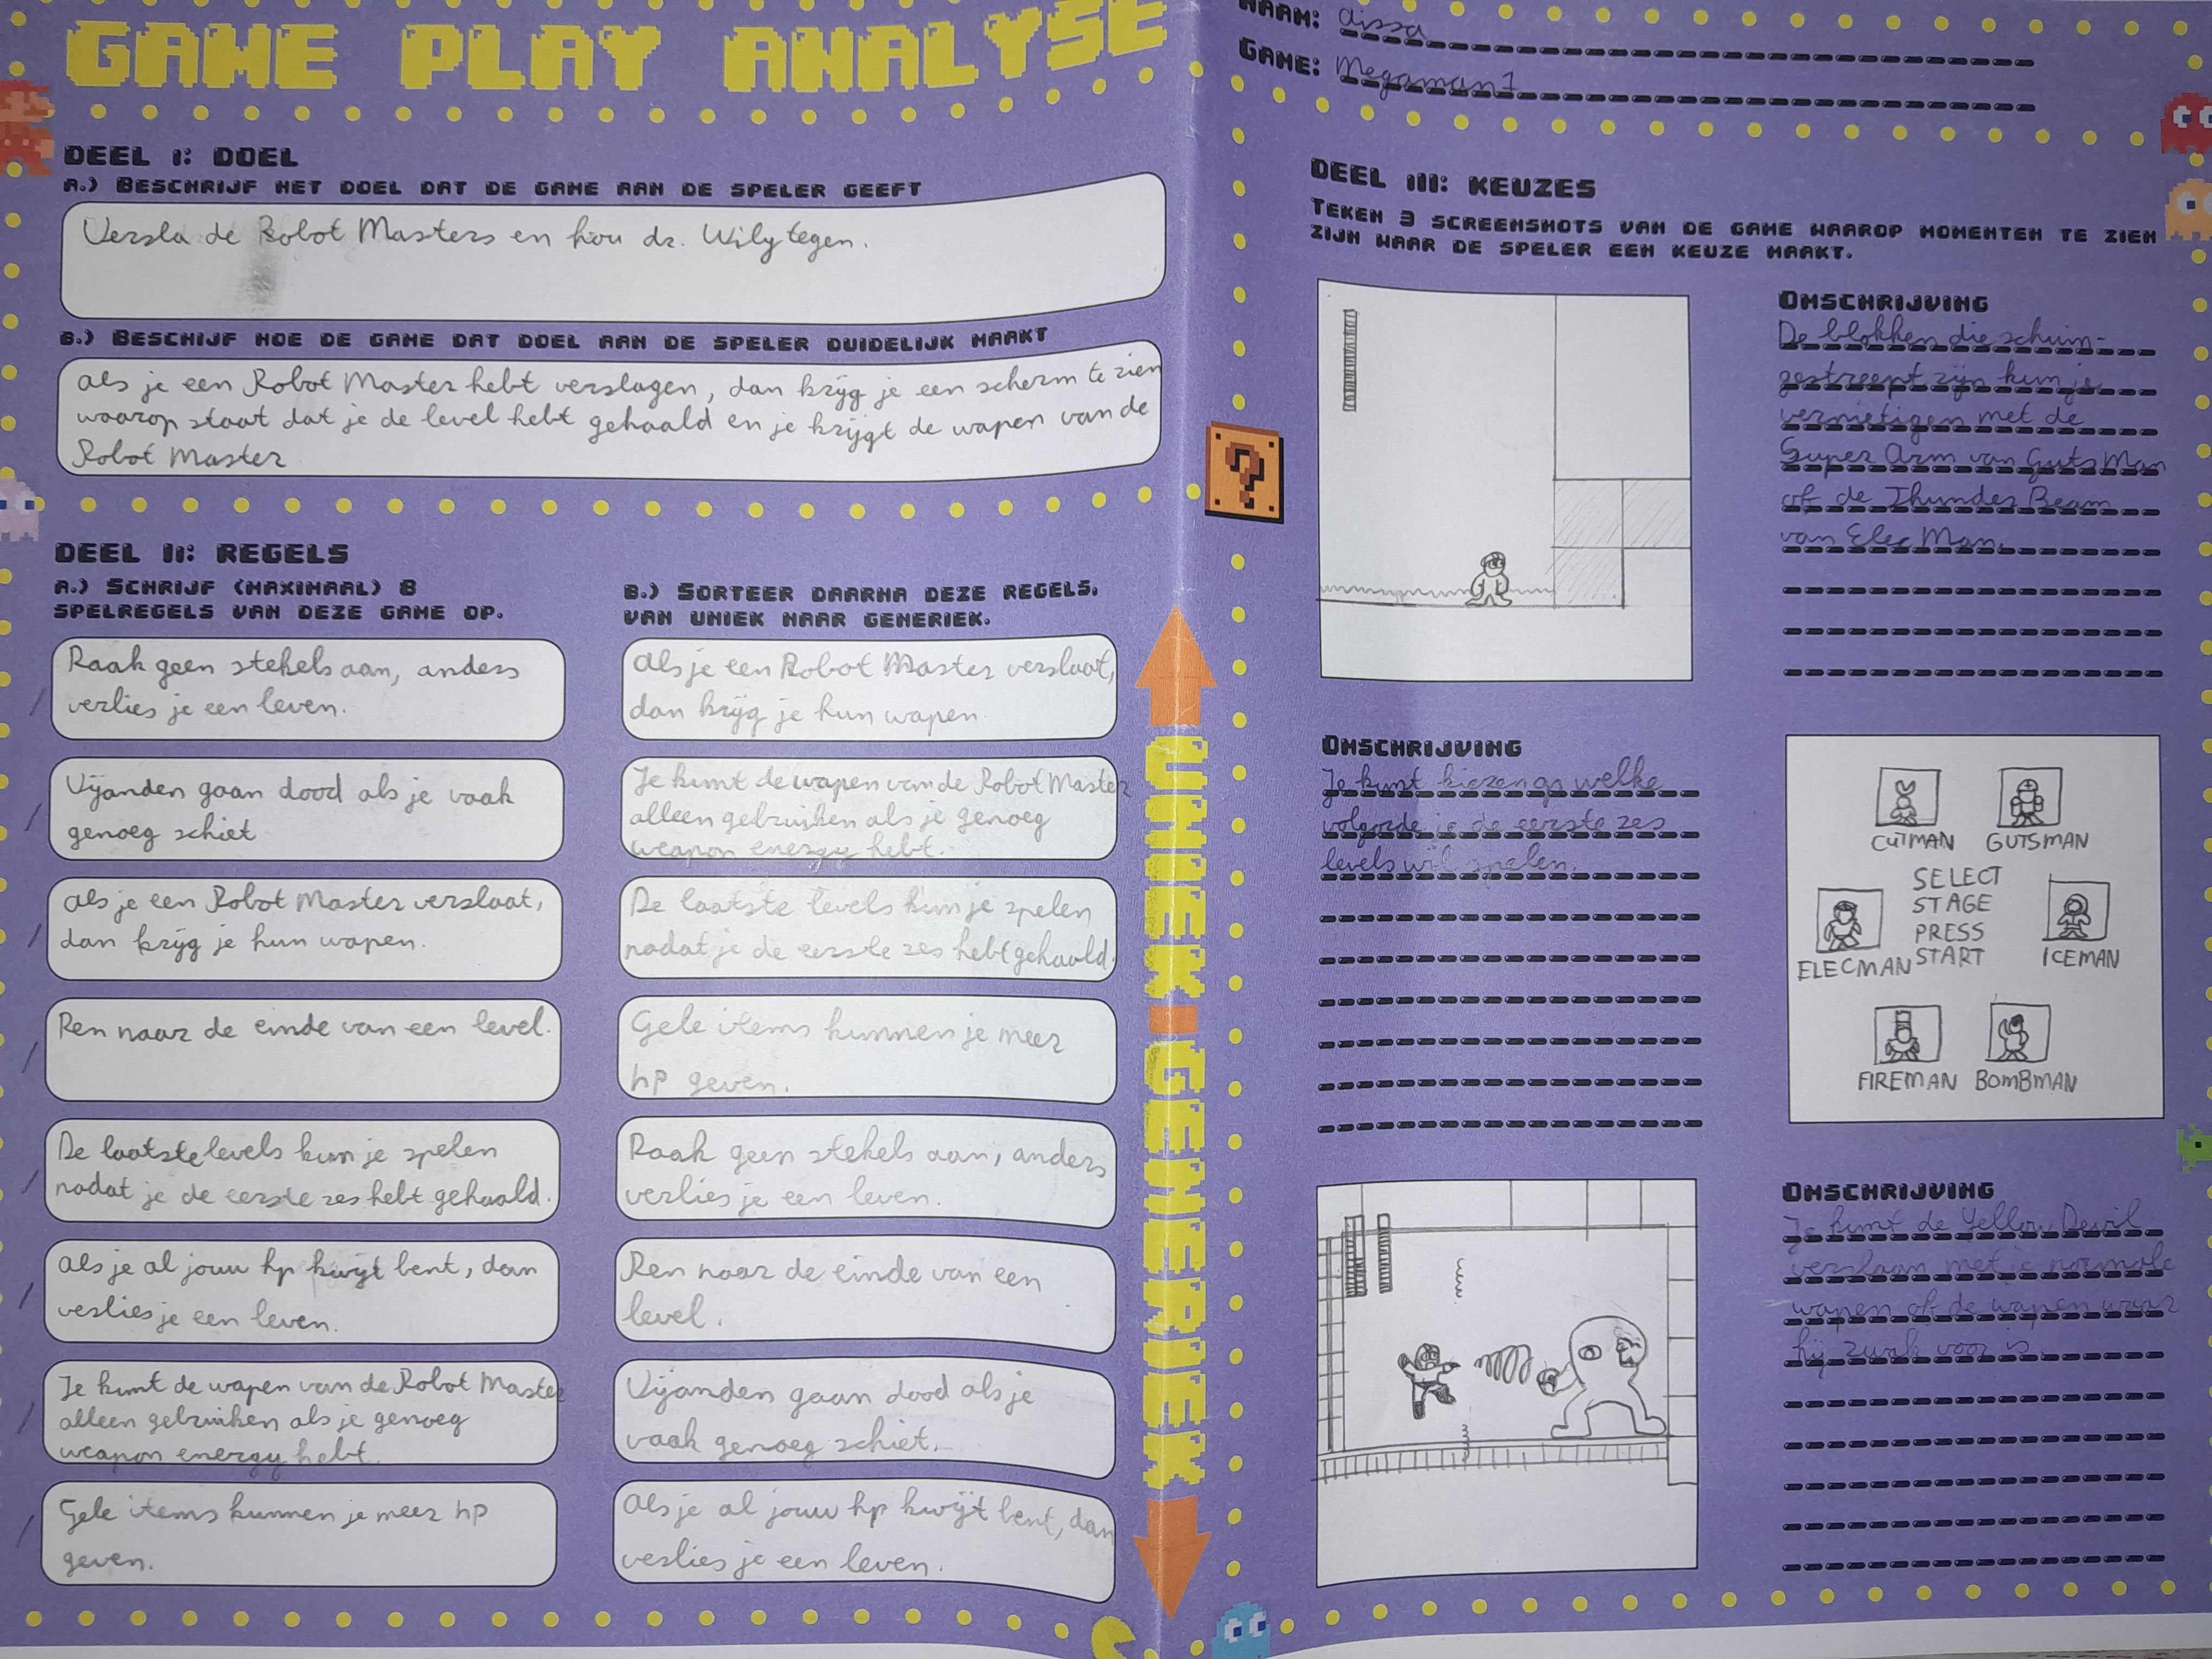 GAME PLAY ANALYSE
NAAM: Aissa
GAME: Megaman 1
DEEL I: DOEL
A.) BESCHRIJF HET DOEL DAT DE GAME AAN DE SPELER GEEFT
Versla de Robot Masters en hou dr. Wily tegen.
B.) BESCHIJF HOE DE GAME DAT DOEL AAN DE SPELER DUIDELIJK MAAKT
Als je een Robot Master hebt verslagen, dan krijg je een scherm te zien
waarop staat dat je de level hebt gehaald en je krijgt de wapen van de
Robot Master
DEEL II: REGELS
A.) SCHRIJF (MAXIMAAL) 8
SPELREGELS VAN DEZE GAME OP.
Raak geen stekels aan, anders
verlies je een leven.
Vijanden gaan dood als je vaak
genoeg schiet
Als je een Robot Master verslaat,
dan krijg je hun wapen.
Ren naar de einde van een level.
De laatste levels kun je spelen
nadat je de eerste zes hebt gehaald.
Als je al jouw hp kwijt bent, dan
verlies je een leven.
Je kunt de wapen van de Robot Master
alleen gebruiken als je genoeg
weapon energy hebt.
Gele items kunnen je meer hp
geven.
B.) SORTEER DAARNA DEZE REGELS,
VAN UNIEK NAAR GENERIEK.
Als je een Robot Master verslaat,
dan krijg je hun wapen
Je kunt de wapen van de Robot Master
alleen gebruiken als je genoeg
weapon energy hebt.
De laatste levels kun je spelen
nadat je de eerste zes hebt gehaald.
Gele items kunnen je meer
hp geven.
Raak geen stekels aan, anders
verlies je een leven.
Ren naar de einde van een
level.
Vijanden gaan dood als je
vaak genoeg schiet.
Als je al jouw hp kwijt bent, dan
verlies je een leven.
UNIEK-GENERIEK
DEEL III: KEUZES
TEKEN 3 SCREENSHOTS VAN DE GAME WAAROP MOMENTEN TE ZIEN
ZIJN WAAR DE SPELER EEN KEUZE MAAKT.
OMSCHRIJVING
De blokken die schuin-
gestreept zijn kun je
vernietigen met de
Super Arm van Guts Man
of de Thunder Beam
van Elec Man.
OMSCHRIJVING
Je kunt kiezen op welke
volgorde je de eerste zes
levels wil spelen.
CUTMAN GUTSMAN
SELECT
STAGE
PRESS
START
ELECMAN
ICEMAN
FIREMAN BOMBMAN
OMSCHRIJVING
Je kunt de Yellow Devil
verslaan met je normale
wapen of de wapen waar
hij zwak voor is.